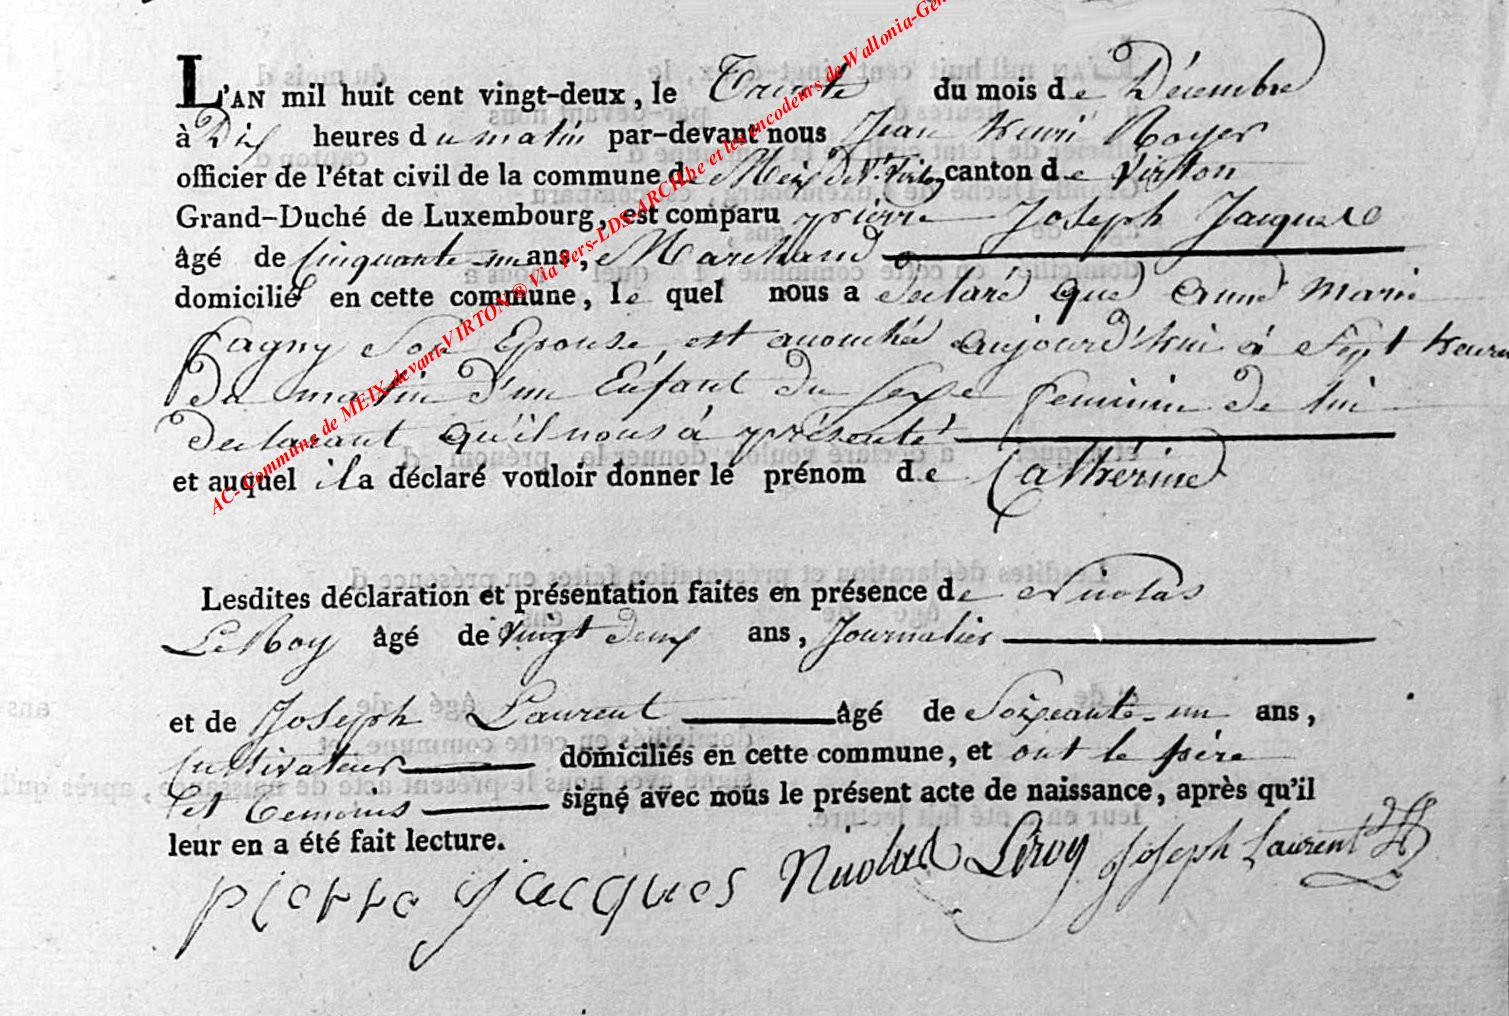 L'AN mil huit cent vingt-deux, le Trente du mois de Décembre
à Dix heures du matin par-devant nous Jean henri Royer
officier de l'état civil de la commune de Meix Dt Virton canton de Virton
Grand-Duché de Luxembourg, est comparu pierre Joseph Jacques
âgé de Cinquante-un ans, Marchand
domicilié en cette commune, le quel nous a déclaré que anne Marie
Pagny Son Epouse, est accouchée aujourd'hui à Sept heures
Du matin d'un Enfant du Sexe feminin de lui
declarant qu'il nous à présenté
et auquel il a déclaré vouloir donner le prénom de Catherine
Lesdites déclaration et présentation faites en présence de Nicolas
LeRoy âgé de vingt deux ans, Journalier
et de Joseph Laurent âgé de Soixante-un ans,
Cultivateur domiciliés en cette commune, et ont le père
et temoins signé avec nous le présent acte de naissance, après qu'il
leur en a été fait lecture.
pierre jacques Nicolas Leroy Joseph Laurent
AC-Commune de MEIX devant VIRTON ® Via Pers-LDS-ARCH.be et les encodeurs de Wallonia-Gen